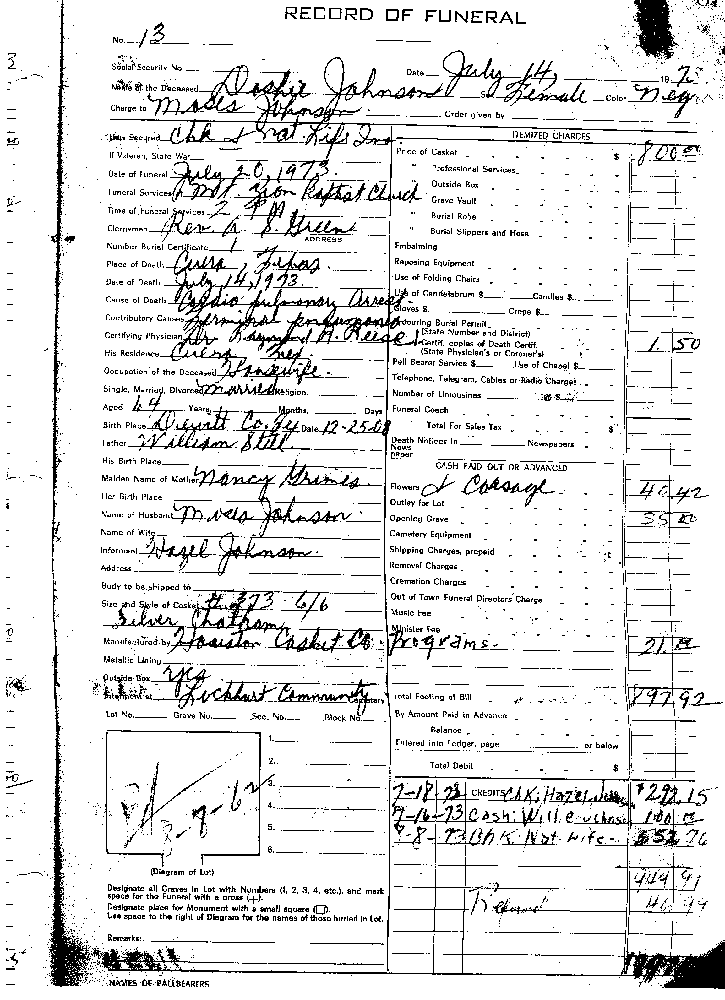 RECORD OF FUNERAL
No. 13
Social Security No.
Date July 14, 197
Name of the Deceased Doshie Johnson Sex Female Color Neg
Charge to Moses Johnson Order given by
How Secured Chk & Nat. Life Ins.
If Veteran, State War
Date of Funeral July 20, 1973
Funeral Services at Mt. Zion Baptist Church
Time of Funeral Services 2 PM
Clergyman Rev. A. S. Green
ADDRESS
Number Burial Certificate 1
Place of Death Cuero, Texas
Date of Death July 14, 1973
Cause of Death Cardio pulmonary Arrest
Contributory Causes Terminal pneumonia
Certifying Physician Dr Raymond A. Reese
His Residence Cuero Tex
Occupation of the Deceased Housewife
Single, Married, Divorced Married Religion
Aged 64 Years Months Days
Birth Place Dewitt Co. Date 12-25-08
Father William Still
His Birth Place
Maiden Name of Mother Nancy Grimes
Her Birth Place
Name of Husband Moses Johnson
Name of Wife
Informant Hazel Johnson
Address
Body to be shipped to
Size and Style of Casket # 373 6/6
Silver Chatham
Manufactured by Houston Casket Co.
Metallic Lining
Outside Box yes
Interment at Lockhart Community Cemetery
Lot No. Grave No. Sec. No. Block No.
1.
2.
3.
4.
5.
6.
8-7-62
(Diagram of Lot)
Designate all Graves in Lot with Numbers (1, 2, 3, 4, etc.), and mark
space for the Funeral with a cross (+).
Designate place for Monument with a small square (☐).
Use space to the right of Diagram for the names of those buried in Lot.
Remarks:
NAMES OF PALLBEARERS
ITEMIZED CHARGES
Price of Casket $ 800.00
" Professional Services
" Outside Box
" Grave Vault
" Burial Robe
" Burial Slippers and Hose
Embalming
Reposing Equipment
Use of Folding Chairs
Use of Candelabrum $ Candles $
Gloves $ Crepe $
Procuring Burial Permit
(State Number and District)
Certif. copies of Death Certif. 1 50
(State Physician's or Coroner's)
Pall Bearer Service $ Use of Chapel $
Telephone, Telegram, Cables or Radio Charges
Number of Limousines @ $
Funeral Coach
Total For Sales Tax $
Death Notices in Newspapers
News
CASH PAID OUT OR ADVANCED
Flowers & Corsage 40.42
Outlay for Lot
Opening Grave 35 00
Cemetery Equipment
Shipping Charges, prepaid
Removal Charges
Cremation Charges
Out of Town Funeral Directors Charge
Music Fee
Minister Fee
Programs 21.00
Total Footing of Bill 897.92
By Amount Paid in Advance
Balance
Entered into Ledger, page or below
Total Debit $
7-18-73 CREDITS Chk: Hazel $292.15
7-16-73 Cash: Willie 100.00
-8-73 Chk Nat Life 552.76
944 91
Refund 46.99